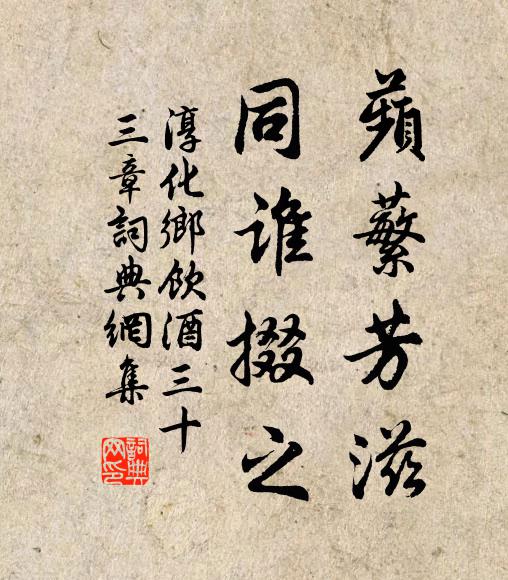 蘋蘩芳滋
同谁掇之
淳化鄉飲酒三十
三章詞典網集
詞典网印